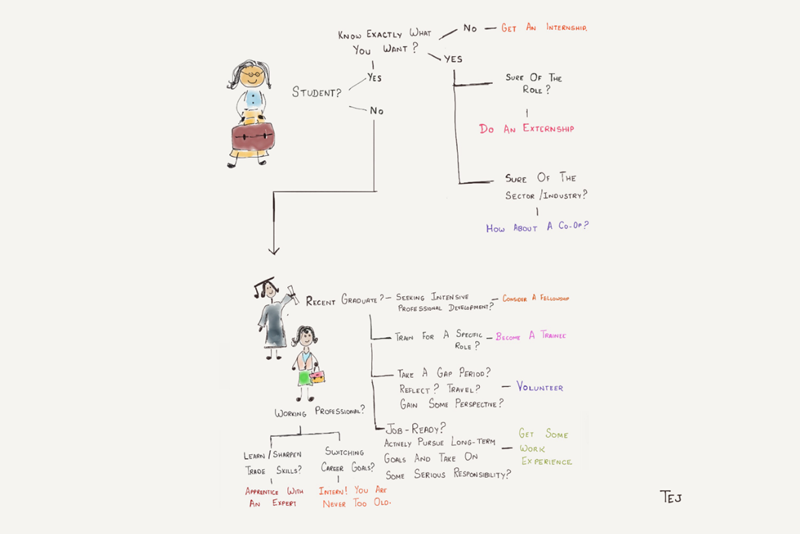 Know Exactly What
You Want?
No — Get An Internship
Yes
Student?
Yes
No
Sure Of The
Role?
Do An Externship
Sure Of The
Sector/Industry?
How About A Co-Op?
Recent Graduate? — Seeking Intensive
Professional Development? — Consider A Fellowship
Train For A Specific
Role? — Become A Trainee
Take A Gap Period?
Reflect? Travel? — Volunteer
Gain Some Perspective?
Working Professional?
Job-Ready?
Actively Pursue Long-Term
Goals And Take On
Some Serious Responsibility?
Get Some
Work
Experience
Learn/Sharpen
Trade Skills?
Apprentice With
An Expert
Switching
Career Goals?
Intern! You Are
Never Too Old.
Tej